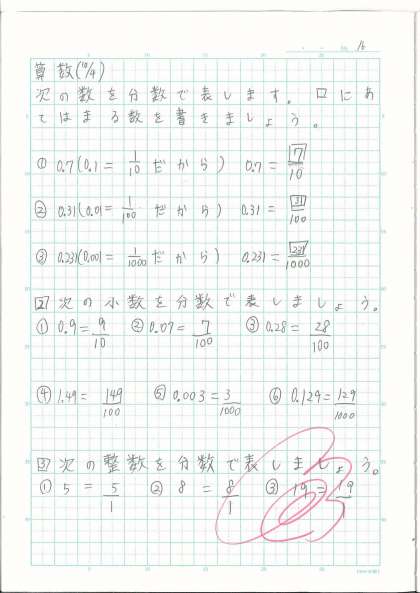 16
算数(10/4)
次の数を分数で表します。口にあ
てはまる数を書きましょう。
① 0.7(0.1 = 1/10 だから) 0.7 = 7/10
② 0.31(0.01 = 1/100 だから) 0.31 = 31/100
③ 0.231(0.001 = 1/1000 だから) 0.231 = 231/1000
2 次の小数を分数で表しましょう。
① 0.9 = 9/10 ② 0.07 = 7/100 ③ 0.28 = 28/100
④ 1.49 = 149/100 ⑤ 0.003 = 3/1000 ⑥ 0.129 = 129/1000
3 次の整数を分数で表しましょう。
① 5 = 5/1 ② 8 = 8/1 ③ 19 = 19/1